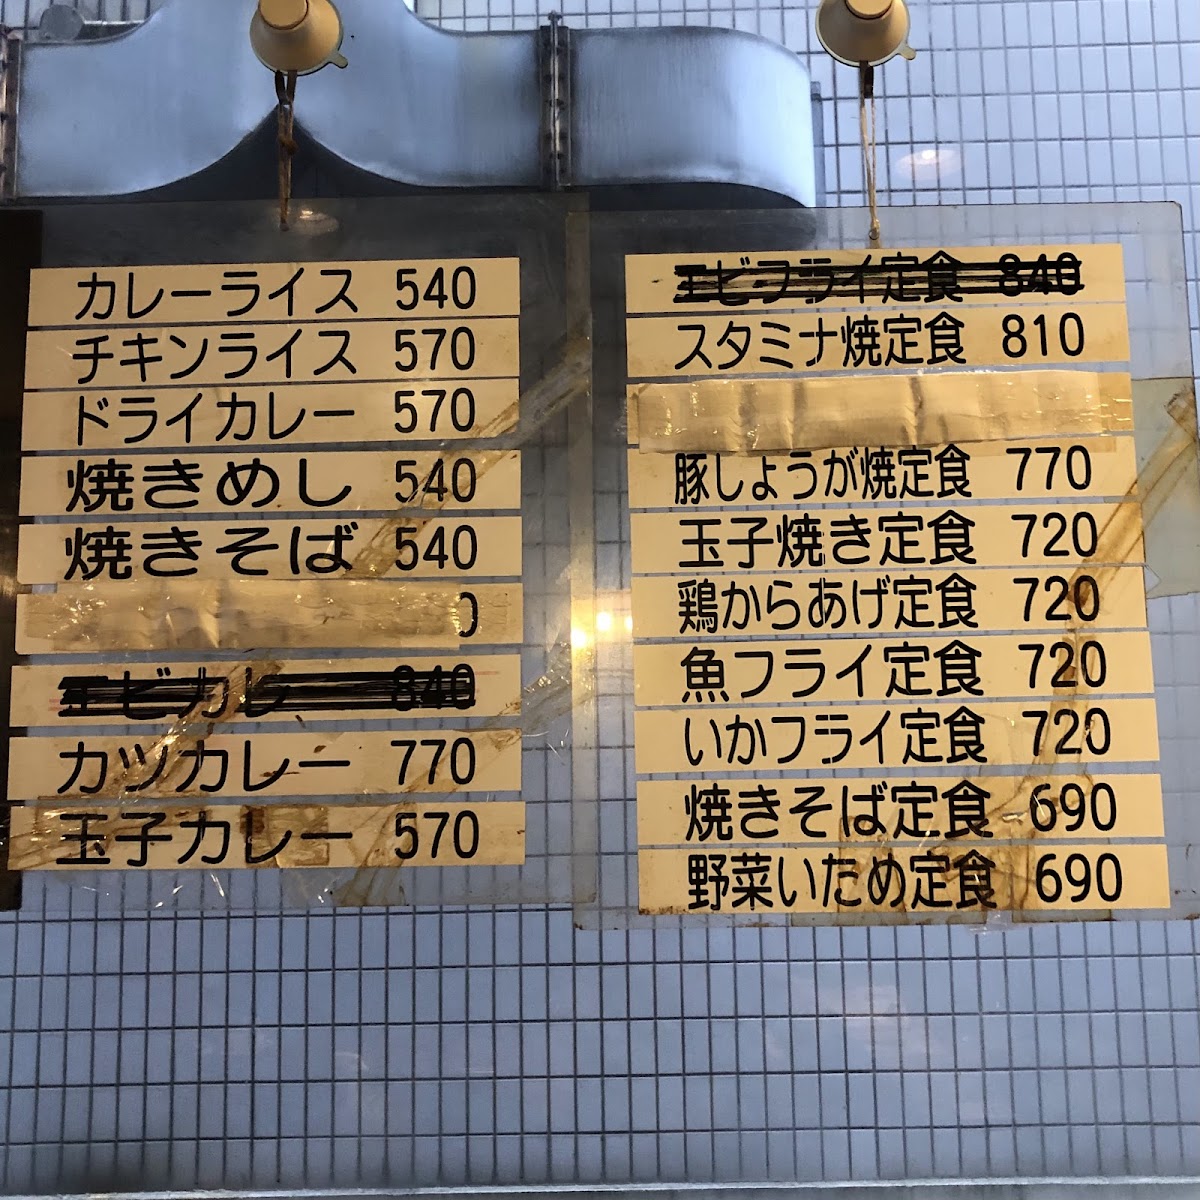 カレーライス 540
チキンライス 570
ドライカレー 570
焼きめし 540
焼きそば 540
0
エビカレー 840
カツカレー 770
玉子カレー 570
エビフライ定食 840
スタミナ焼定食 810
豚しょうが焼定食 770
玉子焼き定食 720
鶏からあげ定食 720
魚フライ定食 720
いかフライ定食 720
焼きそば定食 690
野菜いため定食 690